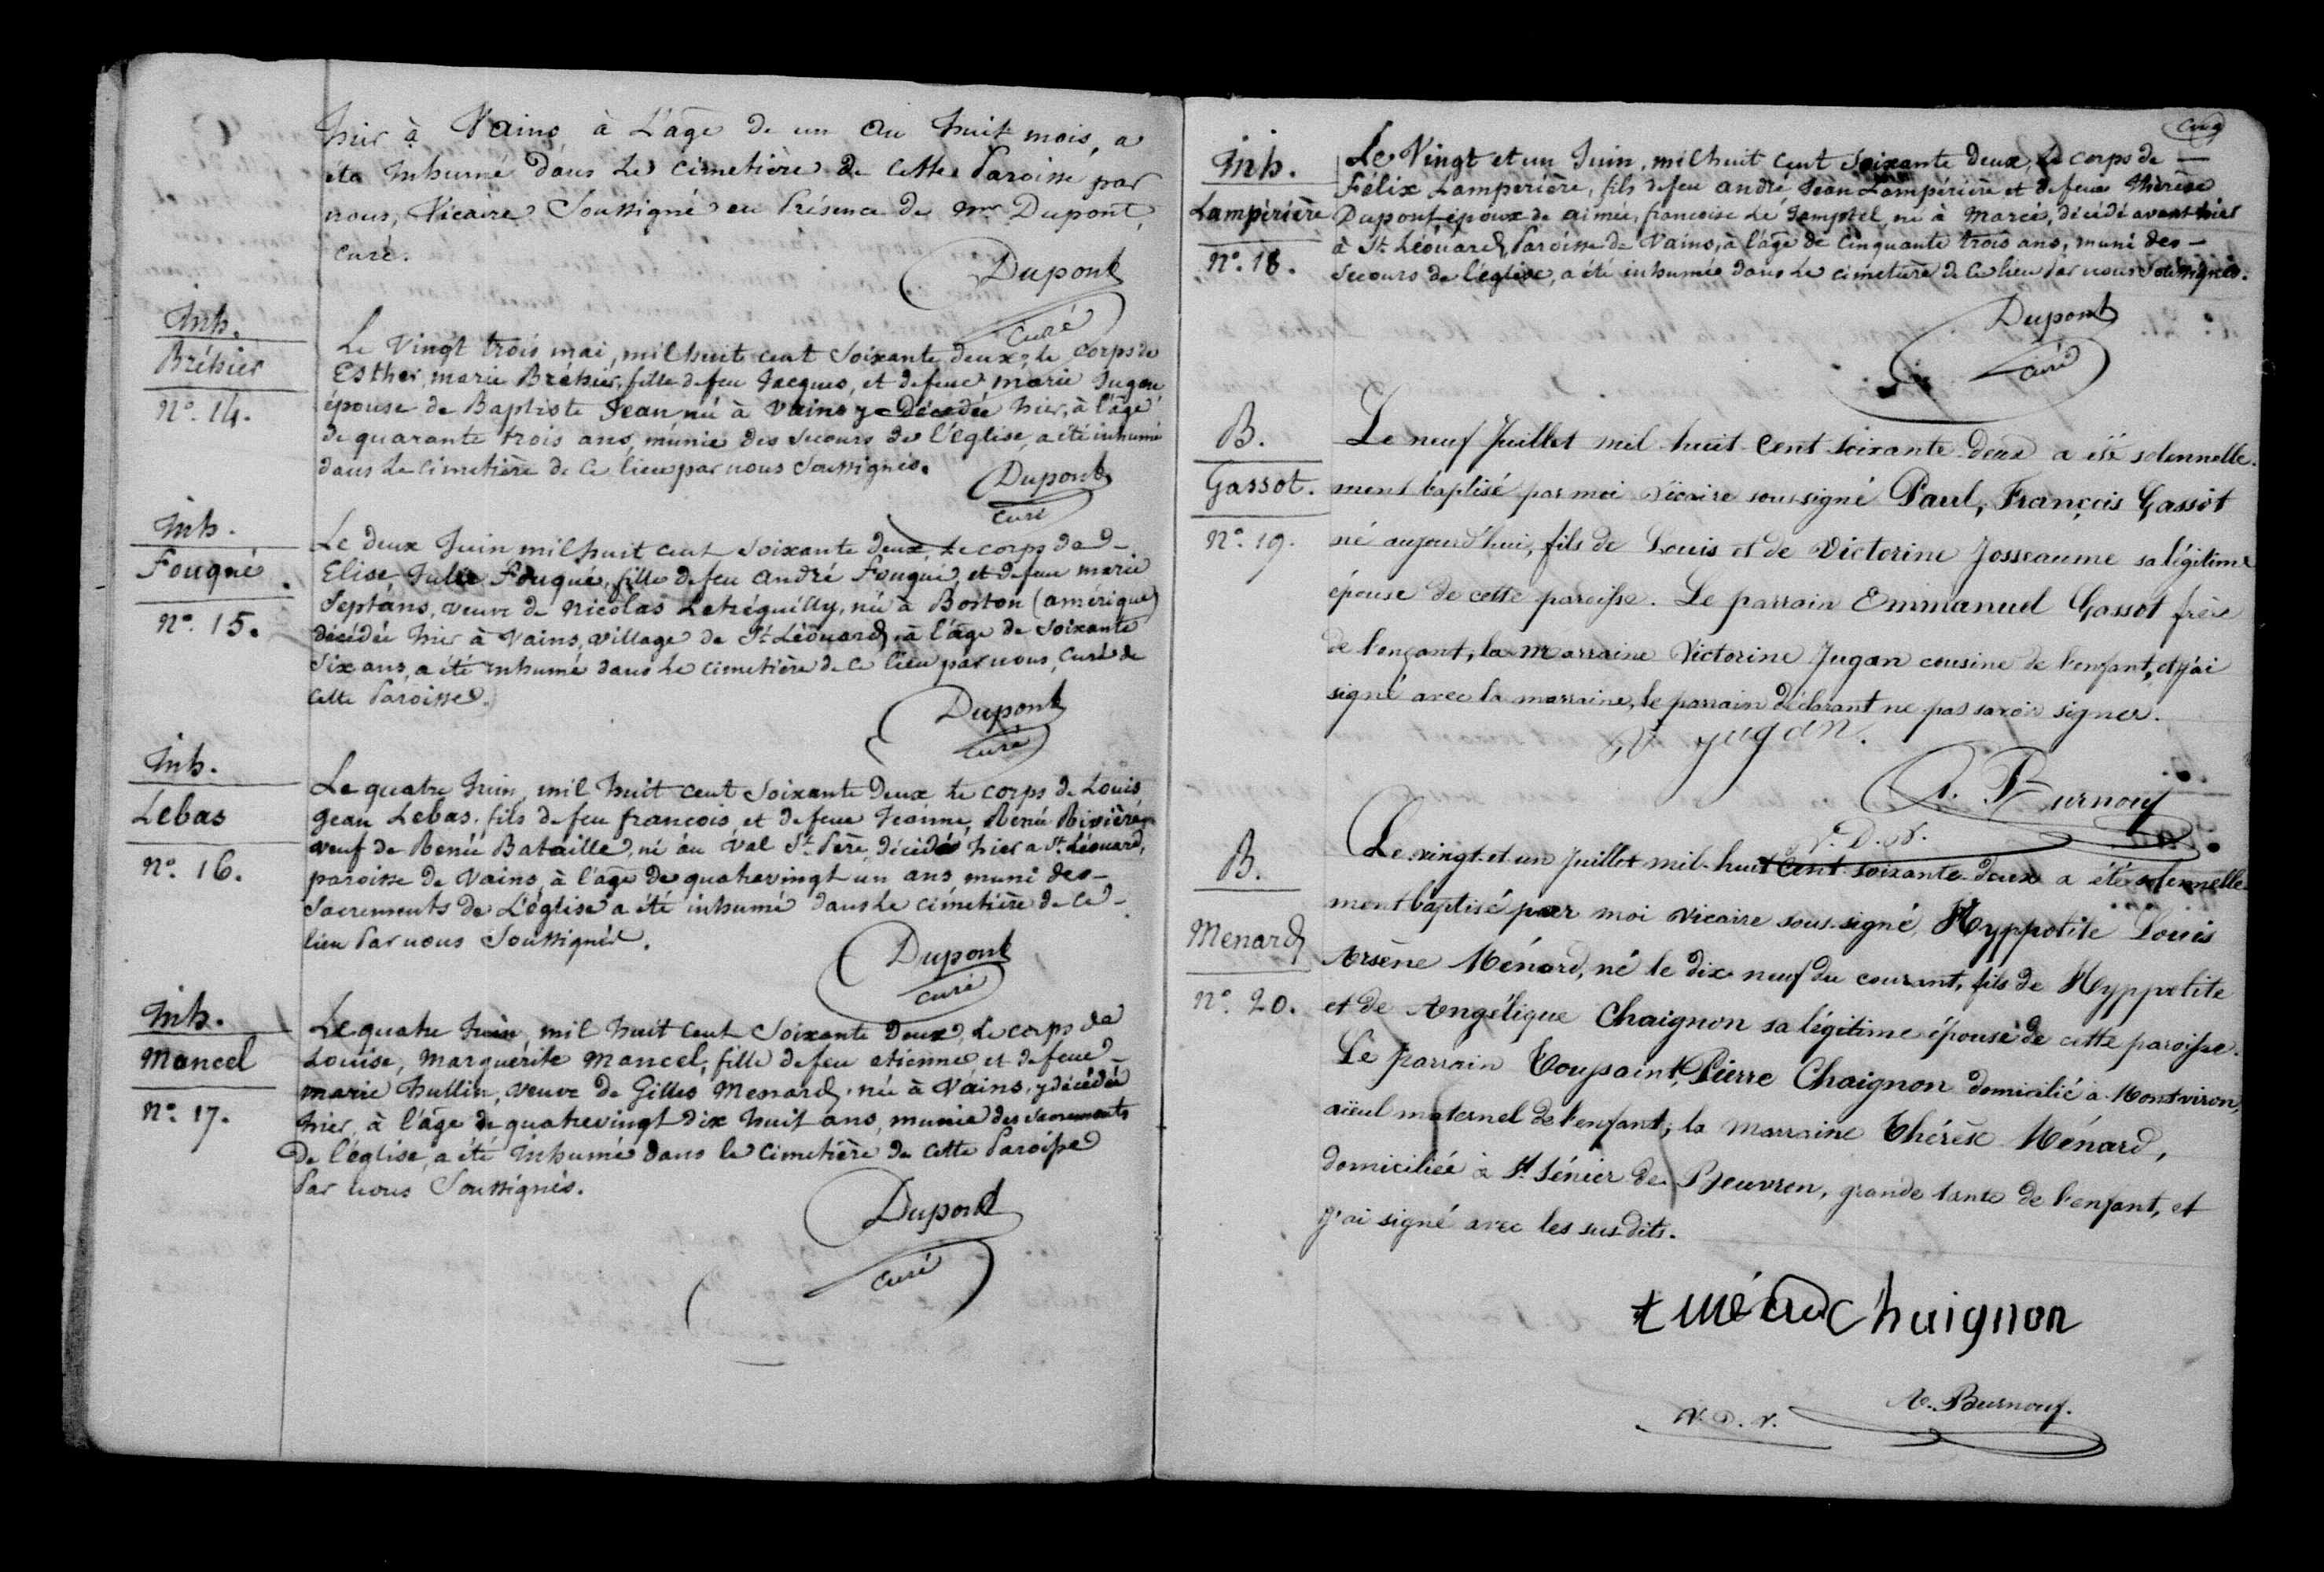 hier à Vains à L'âge de un an huit mois, a
été Inhumé dans Le cimetière de cette Paroisse par
nous, Vicaire Soussigné en Présence de Mr Dupont,
curé.
Dupont
curé
Inh.
Bréhier
N°. 14.
Le Vingt trois mai, mil huit cent Soixante deux, le corps de
Esther, marie Bréhier, fille de feu Jacques, et de feue marie Jugan
épouse de Baptiste Jean née à Vains y Décédée hier, à l'âge
de quarante trois ans, munie des secours de l'Eglise, a été inhumé
dans Le cimetière de ce lieu par nous Soussignés.
Dupont
curé
Inh.
Fouqué
N°. 15.
Le deux Juin mil huit cent Soixante deux, Le corps de
Elise, Julie Fouqué, fille de feu André Fouqué, et de feue marie
Septans, veuve de Nicolas Letréguilly, née à Boston (amérique)
décédée hier à Vains, village de St Léonard, à l'âge de Soixante
Six ans, a été inhumé dans Le cimetière de ce lieu par nous, Curé de
cette Paroisse.
Dupont
curé
Inh.
Lebas
N°. 16.
Le quatre Juin, mil huit cent Soixante deux Le corps de Louis
Jean Lebas, fils de feu françois, et de feue Jeanne, Renée Rivière,
veuf de Renée Bataille, né au Val St Père, décédé hier a St Léonard,
paroisse de Vains, à l'âge de quatrevingt un ans muni des
Sacrements de L'église a été inhumé dans Le cimetière de ce
lieu Par nous Soussigné.
Dupont
curé
Inh.
Mancel
N°. 17.
Le quatre Juin, mil huit cent Soixante deux, Le corps de
Louise, Marguerite Mancel, fille de feu etienne et de feue
marie hullin, veuve de Gilles Menard, née à Vains, y décédée
hier, à l'âge de quatrevingt dix huit ans, munie des Sacrements
De l'église, a été Inhumé dans le Cimetière de cette Paroisse
Par nous Soussignés.
Dupont
curé
cinq
Inh.
Lampérière
N°. 18.
Le Vingt et un Juin, mil huit cent Soixante deux, Le corps de
Félix Lamperière, fils de feu andré, Jean Lampérière et de feue thérèse
Dupont époux de aimée, françoise Le Jamptel, né à Marcé, décédé avant hier
à St Léonard, Paroisse de Vains, à l'âge de Cinquante trois ans, muni des
Secours de l'église, a été inhumée dans Le cimetière de ce lieu Par nous Soussignés.
Dupont
curé
B.
Gassot.
N°. 19.
Le neuf Juillet mil huit cent soixante deux a été solennelle-
ment baptisé par moi vicaire sous-signé Paul, François Gassot
né aujourd'hui, fils de Louis et de Victorine Josseaume sa légitime
épouse de cette paroisse. Le parrain Emmanuel Gassot frère
de l'enfant, la marraine Victorine Jugan cousine de l'enfant, et j'ai
signé avec la marraine, le parrain déclarant ne pas savoir signer.
V jugan.
A. Burnouf
V. D. V.
B.
Menard
N°. 20.
Le vingt-et-un Juillet mil-huit cent soixante-deux a été solennelle-
ment baptisé par moi vicaire sous-signé, Hyppolite Louis
Arsène Ménard, né le dix-neuf du courant, fils de Hyppolite
et de Angélique Chaignon sa légitime épouse de cette paroisse.
Le parrain Toussaint, Pierre Chaignon domicilié à Montviron,
aïeul maternel de l'enfant; la marraine Thérèse Ménard,
domiciliée à St Sénier de Beuvron, grande tante de l'enfant, et
j'ai signé avec les sus-dits.
t ménard Chaignon
A. Burnouf.
V. D. V.